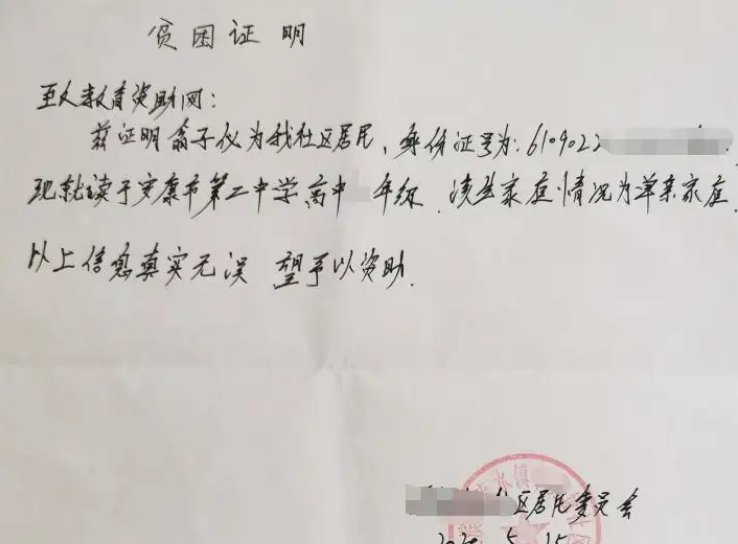 贫困证明
至义教育资助网：
兹证明翁子仪为我社区居民，身份证号为：6109022
现就读于安康市第二中学高中 年级．该生家庭情况为单亲家庭．
以上信息真实无误 望予以资助．
水镇
社区居民委员会
5 15